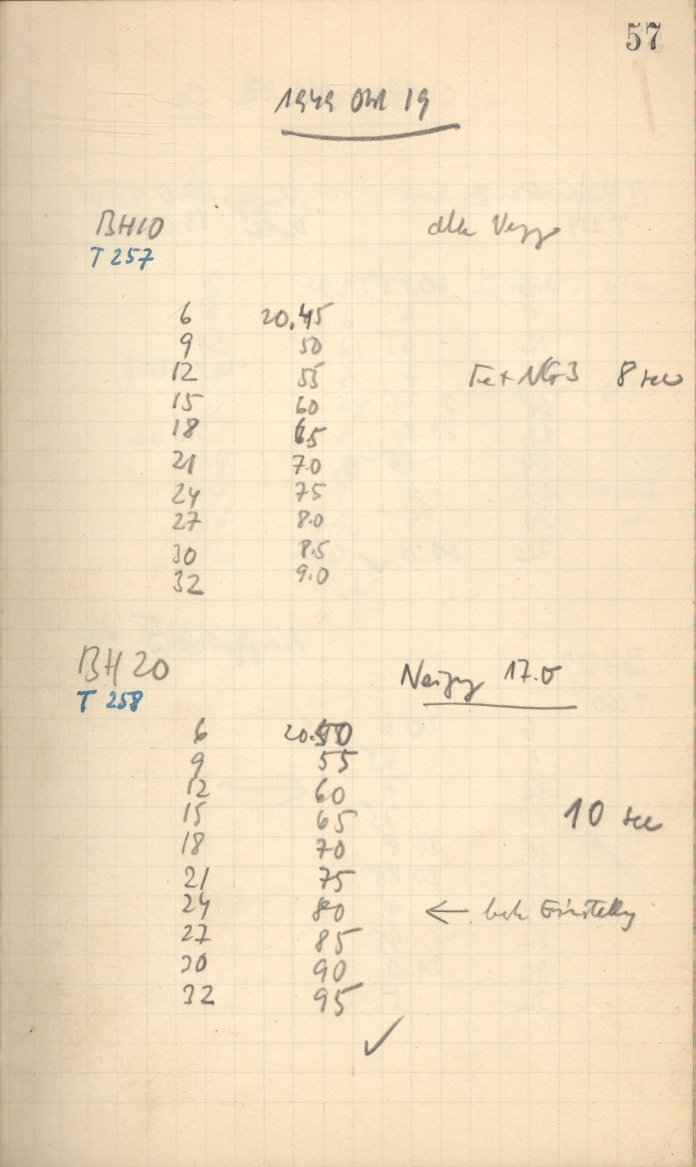 57
1949 Okt 19
BH10
T 257
6 20.45
9 50
12 55
15 60
18 65
21 70
24 75
27 8.0
30 8.5
32 9.0
Fe + NG3 8 sec
BH 20
T 258
Neigung 17.0
6 20.50
9 55
12 60
15 65
18 70
21 75
24 80 ←
27 85
30 90
32 95
10 sec
✓